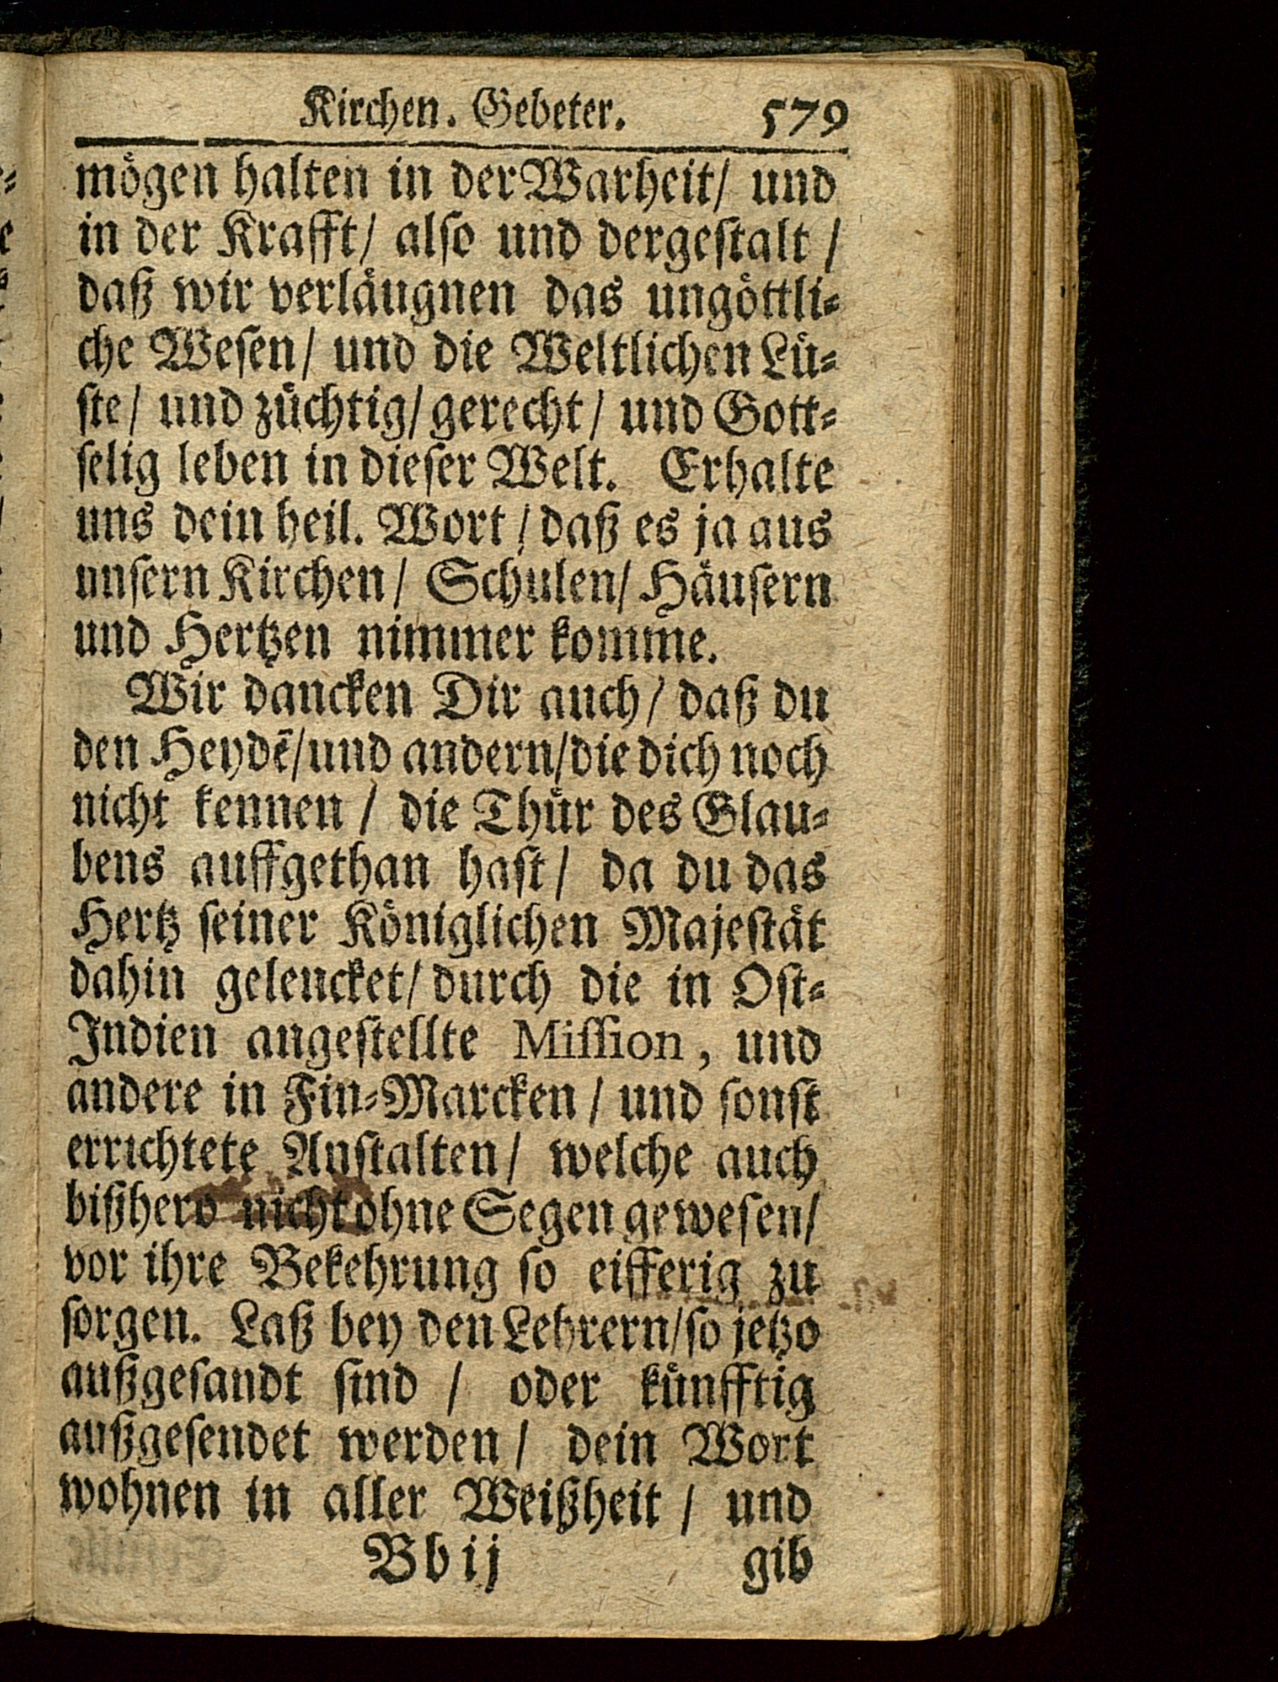 Kirchen. Gebeter. 579
mögen halten in der Warheit/ und
in der Krafft/ also und dergestalt /
daß wir verläugnen das ungöttli-
che Wesen/ und die Weltlichen Lü-
ste/ und züchtig/ gerecht/ und Gott-
selig leben in dieser Welt. Erhalte
uns dein heil. Wort / daß es ja aus
unsern Kirchen/ Schulen/ Häusern
und Hertzen nimmer komme.
Wir dancken Dir auch/ daß du
den Heydē/und andern/die dich noch
nicht kennen / die Thür des Glau-
bens auffgethan hast/ da du das
Hertz seiner Königlichen Majestät
dahin gelencket/ durch die in Ost-
Indien angestellte Mission, und
andere in Fin-Marcken / und sonst
errichtete Anstalten/ welche auch
bißhero nicht ohne Segen gewesen/
vor ihre Bekehrung so eifferig zu
sorgen. Laß bey den Lehrern/so jetzo
außgesandt sind / oder künfftig
außgesendet werden/ dein Wort
wohnen in aller Weißheit / und
Bb ij gib